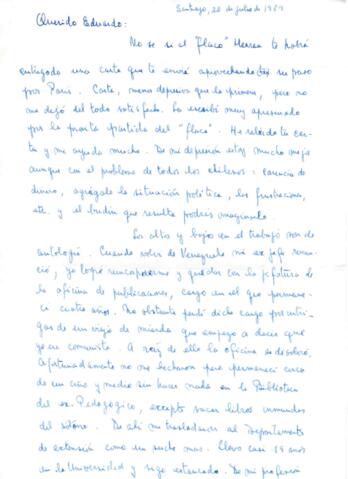 Santiago, 28 de julio de 1981
Querido Eduardo:
No se si el "flaco" Herrera te habrá
entregado una carta que te envié aprovechando su paso
por Paris. Carta, menos depresiva que la primera, pero no
me dejó del todo satisfecho. La escribí muy apresurado
por la pronta partida del "flaco". He releído tu car-
ta y me ayuda mucho. De mi depresión estoy mucho mejor
aunque con el problema de todos los chilenos: carencia de
dinero, agrégale la situación política, las frustraciones,
etc. y el budín que resulta podrás imaginarlo.
Los altos y bajos en el trabajo son de
antología. Cuando volví de Venezuela mi ex jefe renun-
ció, yo logré reincorporarme y quedar con la jefatura de
la oficina de publicaciones, cargo en el que permane-
cí cuatro años. No obstante perdí dicho cargo por intri-
gas de un viejo de mierda que empezó a decir que
yo era comunista. A raíz de ello la oficina se disolvió.
Afortunadamente no me echaron pero permanecí cerca
de un año y medio sin hacer nada en la Biblioteca
del ex-Pedagógico, excepto sacar libros inmundos
del sótano. De ahí me trasladaron al Departamento
de extensión como un pucho mas. Llevo casi 14 años
en la Universidad y sigo estancado. De mi profesión